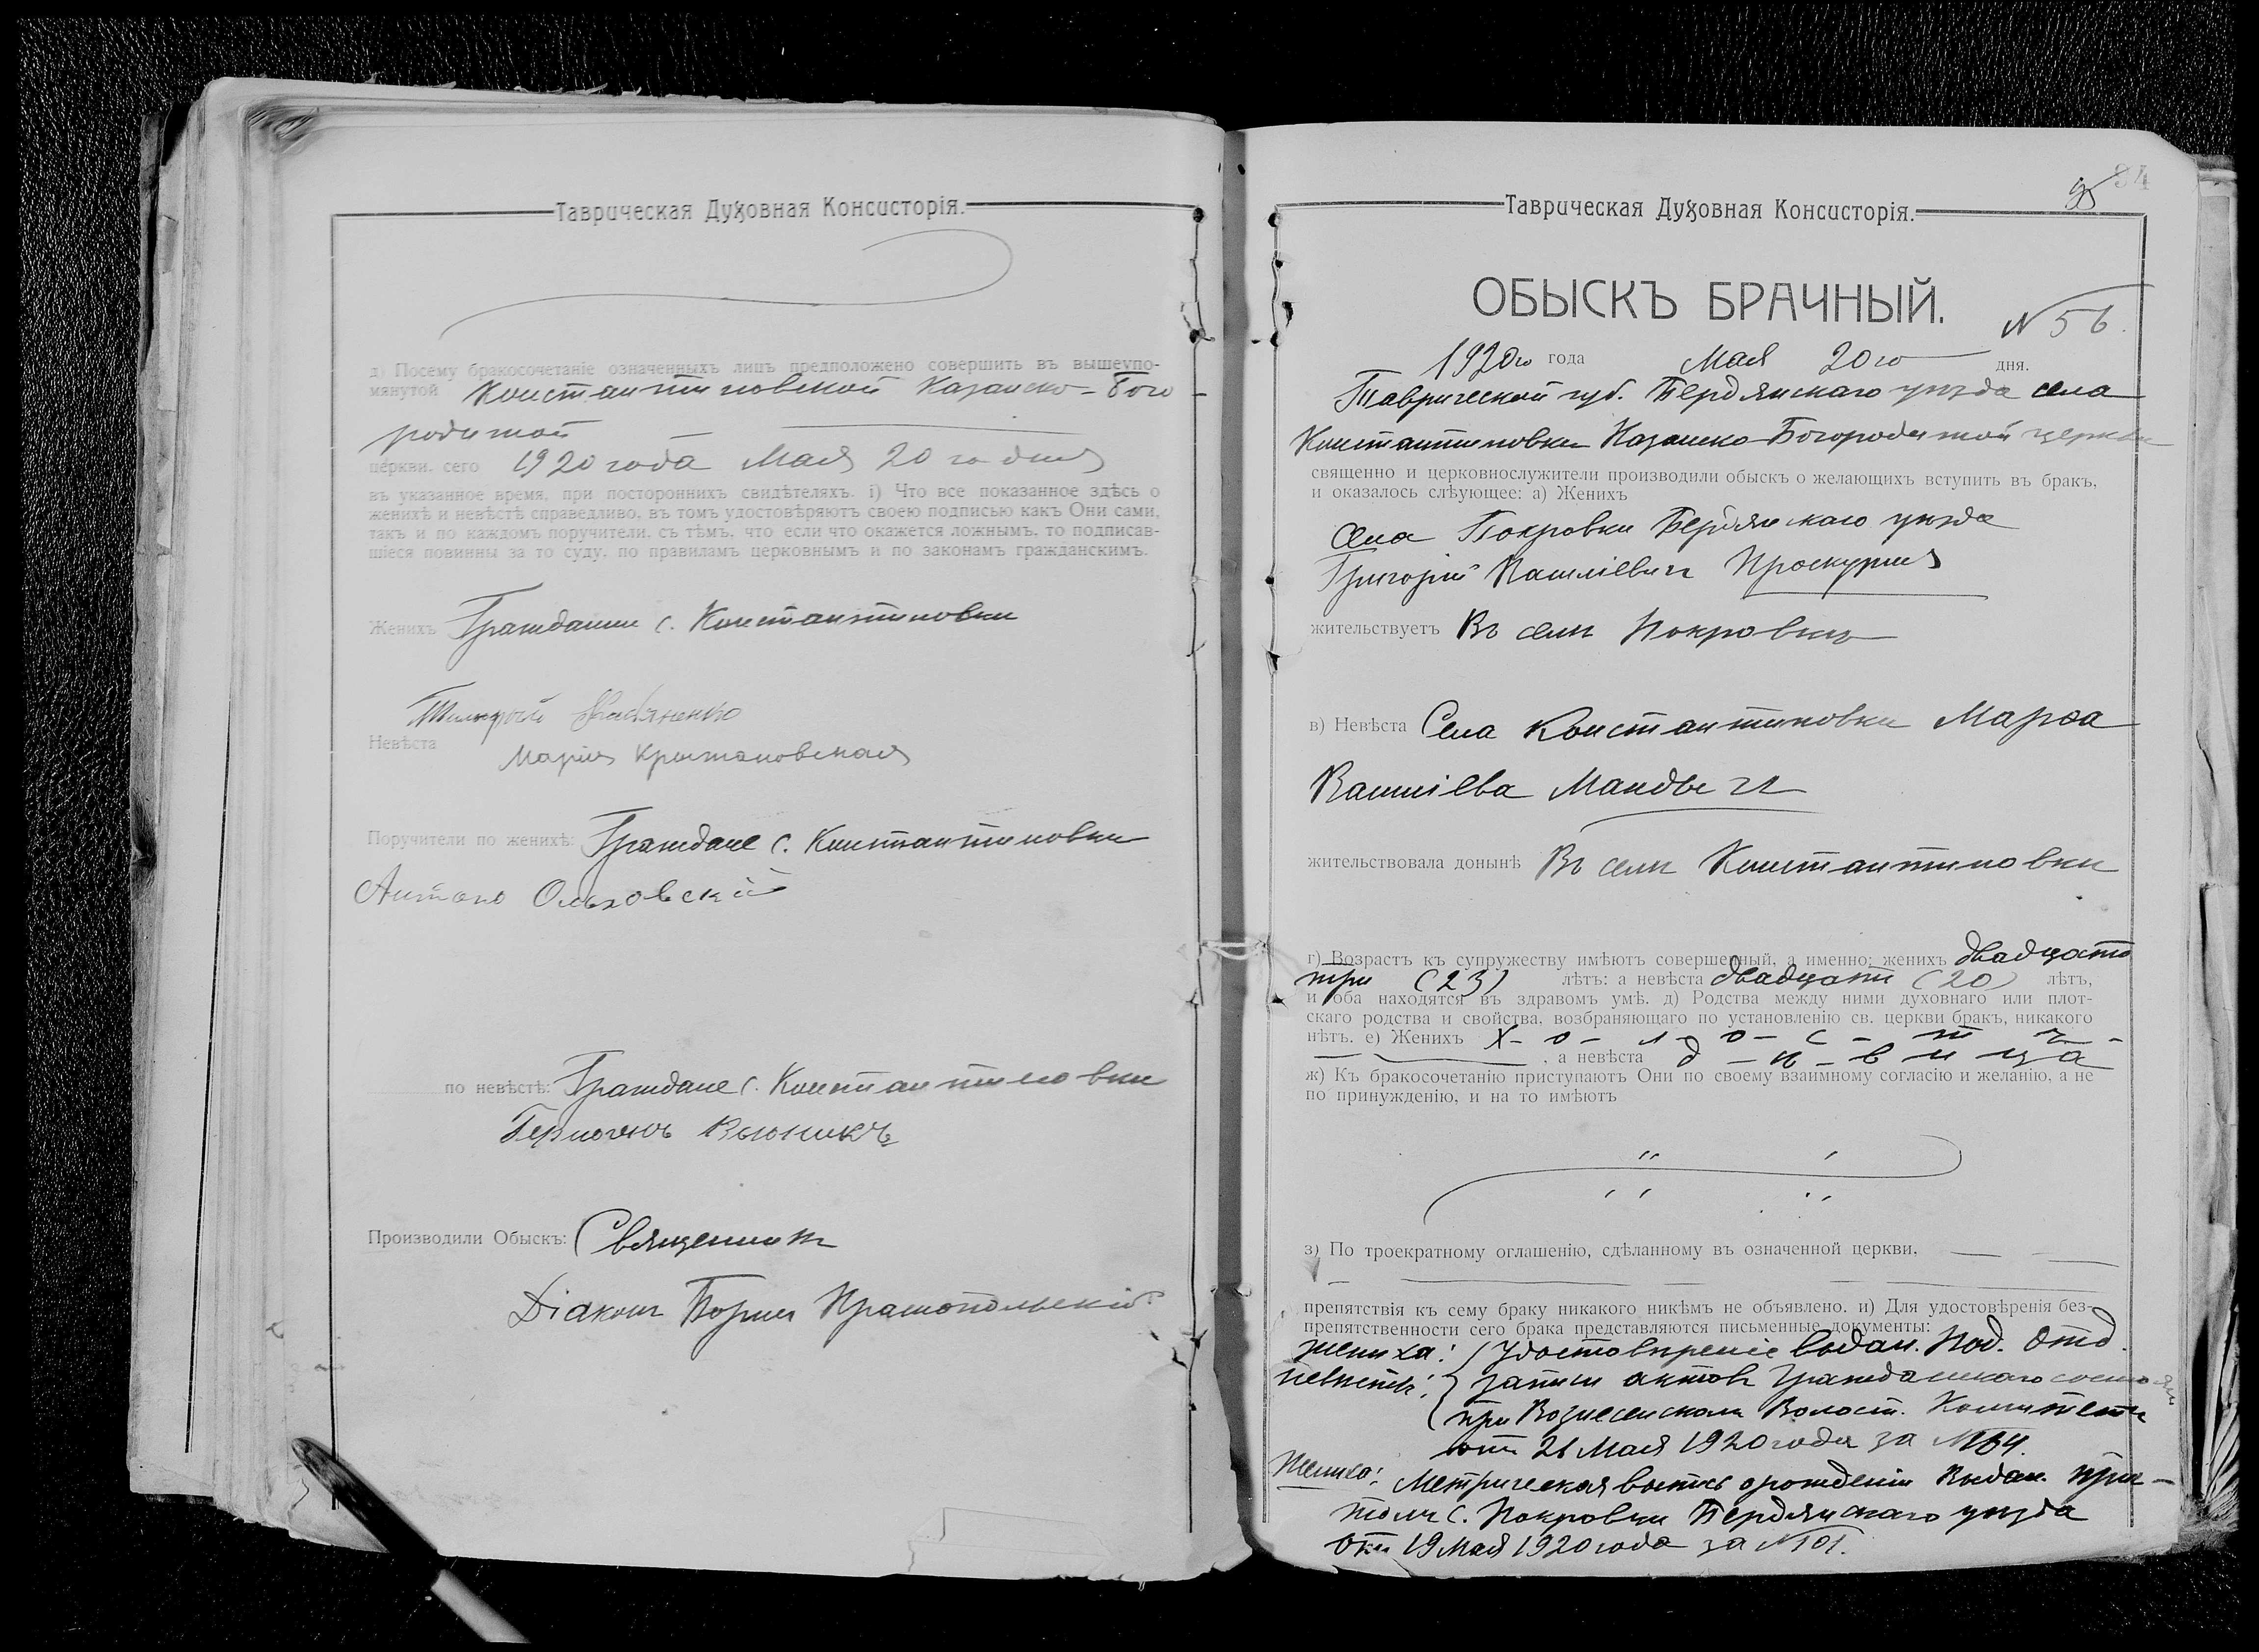 Таврическая Духовная Консисторія.
д) Посему бракосочетаніе означенныхъ лицъ предположено совершить въ вышеупо-
мянутой Константиновской Казанско-Бого-
родичной
церкви, сего 1920 года Мая 20 го дня
въ указанное время, при постороннихъ свидѣтеляхъ. і) Что все показанное здѣсь о
женихѣ и невѣстѣ справедливо, въ томъ удостовѣряютъ своею подписью какъ Они сами,
такъ и по каждомъ поручители, съ тѣмъ, что если что окажется ложнымъ, то подписав-
шіеся повинны за то суду, по правиламъ церковнымъ и по законамъ гражданскимъ.
Женихъ Гражданин с. Константиновки
Невѣста
Марія
Поручители по женихѣ: Граждане с. Константиновки
Антонъ Ольховскій
по невѣстѣ: Граждане с. Константиновки
Вьюникъ
Производили Обыскъ: Священникъ
Діаконъ Борисъ
Таврическая Духовная Консисторія.
94
95
ОБЫСКЪ БРАЧНЫЙ.
N 56.
1920го года Мая 20го дня.
Таврической губ. Бердянскаго уѣзда села
Константиновки Казанско-Богородичной церкви
священно и церковнослужители производили обыскъ о желающихъ вступить въ бракъ,
и оказалось слѣующее: а) Женихъ
Села Покровки Бердянскаго уѣзда
Григорій Василіевичъ Проскурня
жительствуетъ Въ селѣ Покровкѣ
в) Невѣста Села Константиновки Марѳа
Василіева
жительствовала донынѣ Въ селѣ Константиновки
г) Возрастъ къ супружеству имѣютъ совершенный, а именно: женихъ двадцать
три (23) лѣтъ: а невѣста двадцати (20) лѣтъ,
и оба находятся въ здравомъ умѣ. д) Родства между ними духовнаго или плот-
скаго родства и свойства, возбраняющаго по установленію св. церкви бракъ, никакого
нѣтъ. е) Женихъ Х-о-л-о-с-т-ъ-
, а невѣста д-ѣ-в и ц а
ж) Къ бракосочетанію приступаютъ Они по своему взаимному согласію и желанію, а не
по принужденію, и на то имѣютъ
з) По троекратному оглашенію, сдѣланному въ означенной церкви,
препятствія къ сему браку никакого никѣмъ не объявлено. и) Для удостовѣренія без-
препятственности сего брака представляются письменные документы:
жениха: удостовѣреніе выдан. Под. Отд.
невѣсты: записи актовъ Гражданскаго состоян
при Вознесенскомъ Волост. Комитетѣ
отъ 21 Мая 1920 года за №
Жениха: Метрическая выпись о рожденіи Выдан. при-
томъ с. Покровки Бердянскаго уѣзда
отъ 19 Мая 1920 года за № 101.